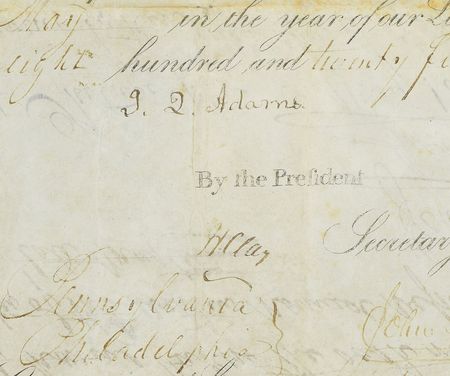 May in the year of our
eight hundred and twenty
J. Q. Adams.
By the Preſident
H Clay
Secretary
Pennsylvania
John
Philadelphia